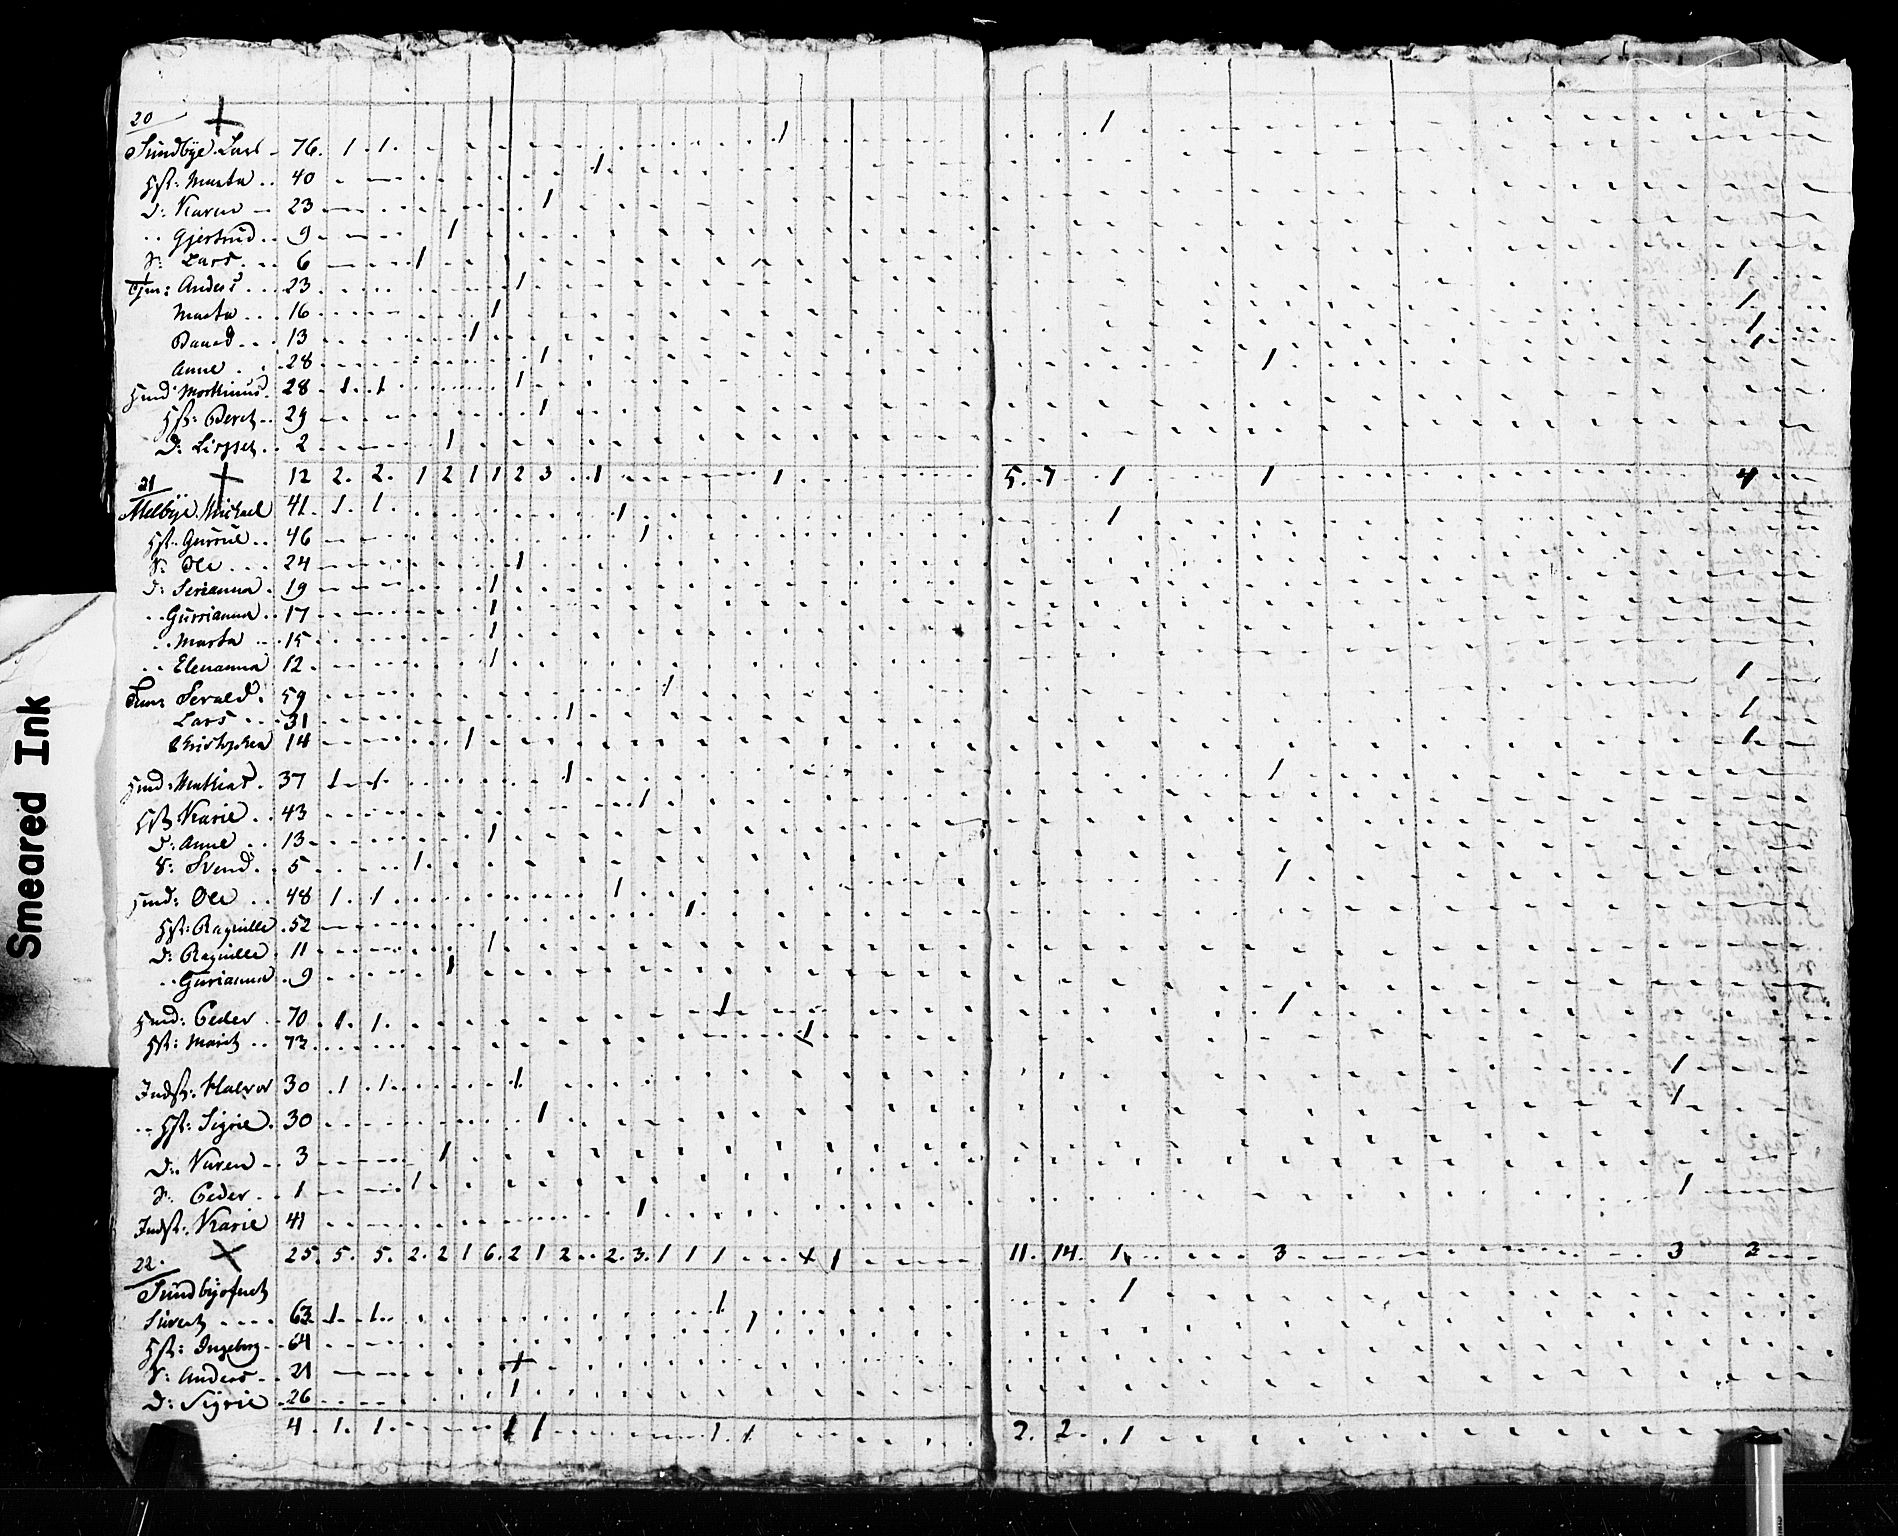 20
Sundbÿe Lars 76. 1. 1. 1 1
Hst: Marta 40 1
D: Karen 23 1
Gjertrud 9 1
S: Lars 6 1
Tjen: Anders 23 1 1
Marta 16 1 1
13 1 1
Anne 28 1 1
Huusd Morthinus 28 1 1 1 1
Hst: Beret 29 1
D: Lispet 2 1
12 2. 2. 1 2 1 1 2 3 1 1 5. 7 1 1 4
21
Melbÿe Michael 41. 1. 1 1 1
Hst: Guroue 46 1
S: Ole 24 1
D: Serianna 19 1
Gurrianna 17 1
Marta 15 1
Elenanna 12 1
59 1 1
Lars 31 1 1
Christopher 14 1 1
Hmd: Mathias 37 1 1 1 1
Hst Karie 43 1
D: Anne 13 1
S: Svend 5 1
Hmd: Ole 48 1. 1 1 1
Hst: Ragnille 52 1
D: Ragnille 11 1
Gurianna 9 1
Hmd: Peder 70 1. 1. 1 1
Hst: Marit 73 1
Indst: Halvor 30 1 1 1 1
Hst: Sigrie 30 1 1
D: Karen 3 1
S: Peder 1 1
Indst: Karie 41 1 1
25. 5. 5. 2. 2 1 6. 2 1 2 2. 3. 1 1 1 + 1 11. 14. 1 3 3 3
22.
Sundbyøfnet
Sivert 63 1 1 1 1
Hst: Ingeborg 64 1
S: Anders 21 +
D: Sigrie 26 1
4. 1. 1 1 1 1. 1 2. 2. 1
Smeared Ink